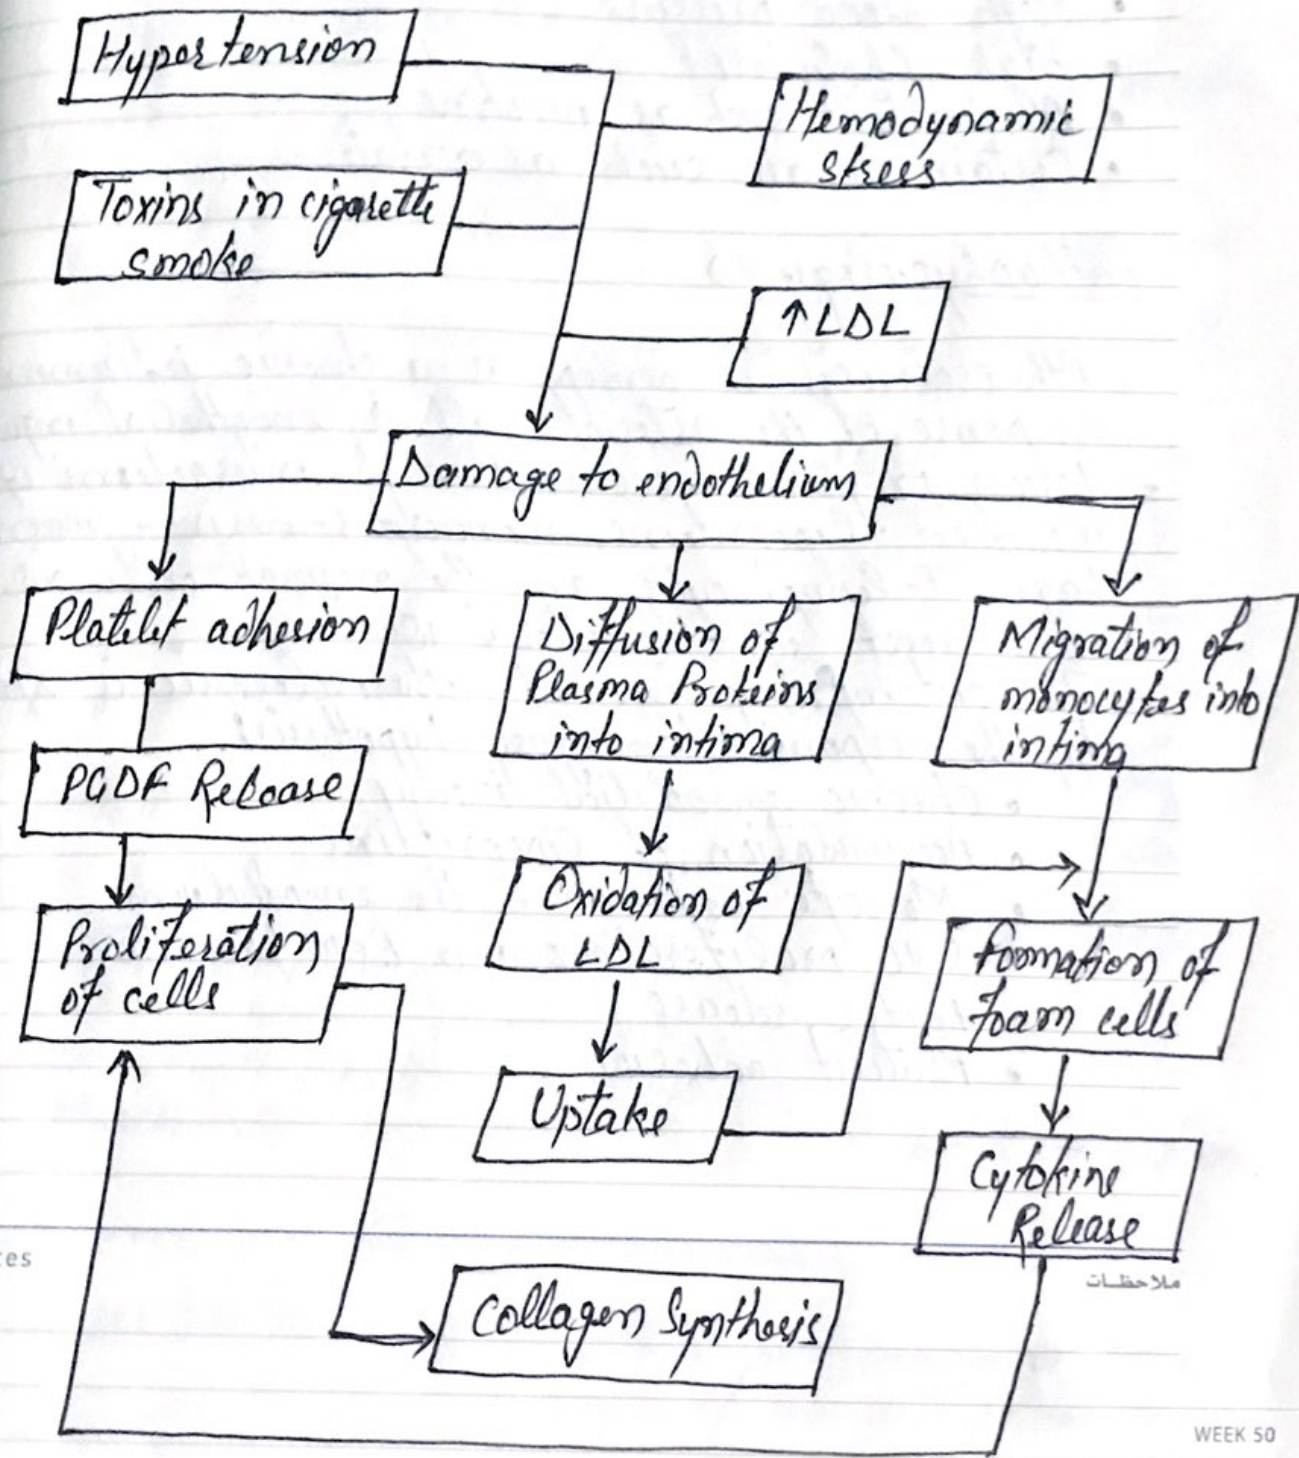 Hypertension
Hemodynamic
stress
Toxins in cigarette
smoke
↑LDL
Damage to endothelium
Platelet adhesion
Diffusion of
Plasma Proteins
into intima
Migration of
monocytes into
intima
PGDF Release
Oxidation of
LDL
Proliferation
of cells
Formation of
foam cells
Uptake
Cytokine
Release
ملاحظات
Collagen Synthesis
WEEK 50